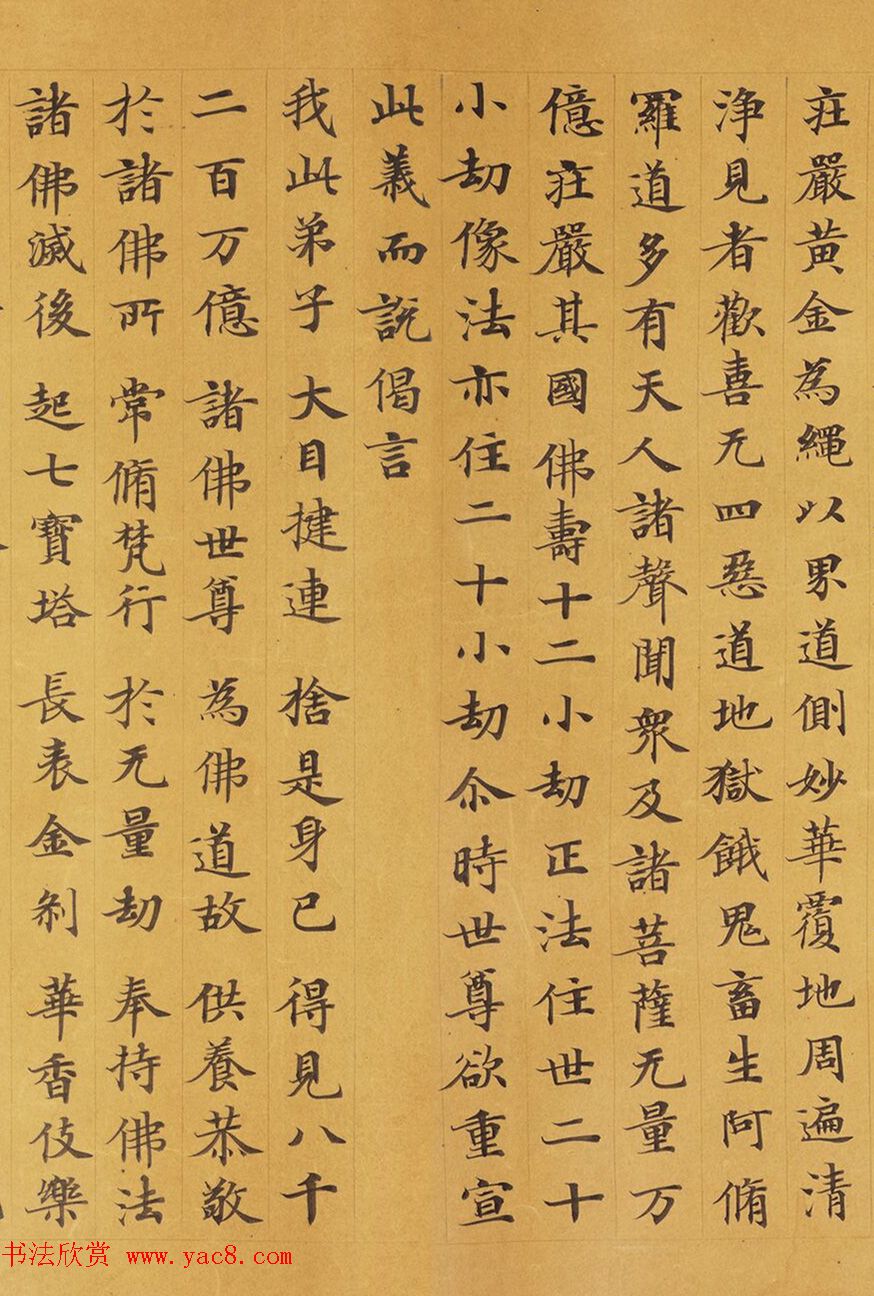 莊嚴黃金為繩以界道側妙華覆地周遍清
淨見者歡喜无四惡道地獄餓鬼畜生阿脩
羅道多有天人諸聲聞眾及諸菩薩无量万
億莊嚴其國佛壽十二小劫正法住世二十
小劫像法亦住二十小劫尒時世尊欲重宣
此義而說偈言
我此弟子 大目揵連 捨是身已 得見八千
二百万億 諸佛世尊 為佛道故 供養恭敬
於諸佛所 常脩梵行 於无量劫 奉持佛法
諸佛滅後 起七寶塔 長表金剎 華香伎樂
书法欣赏 www.yac8.com